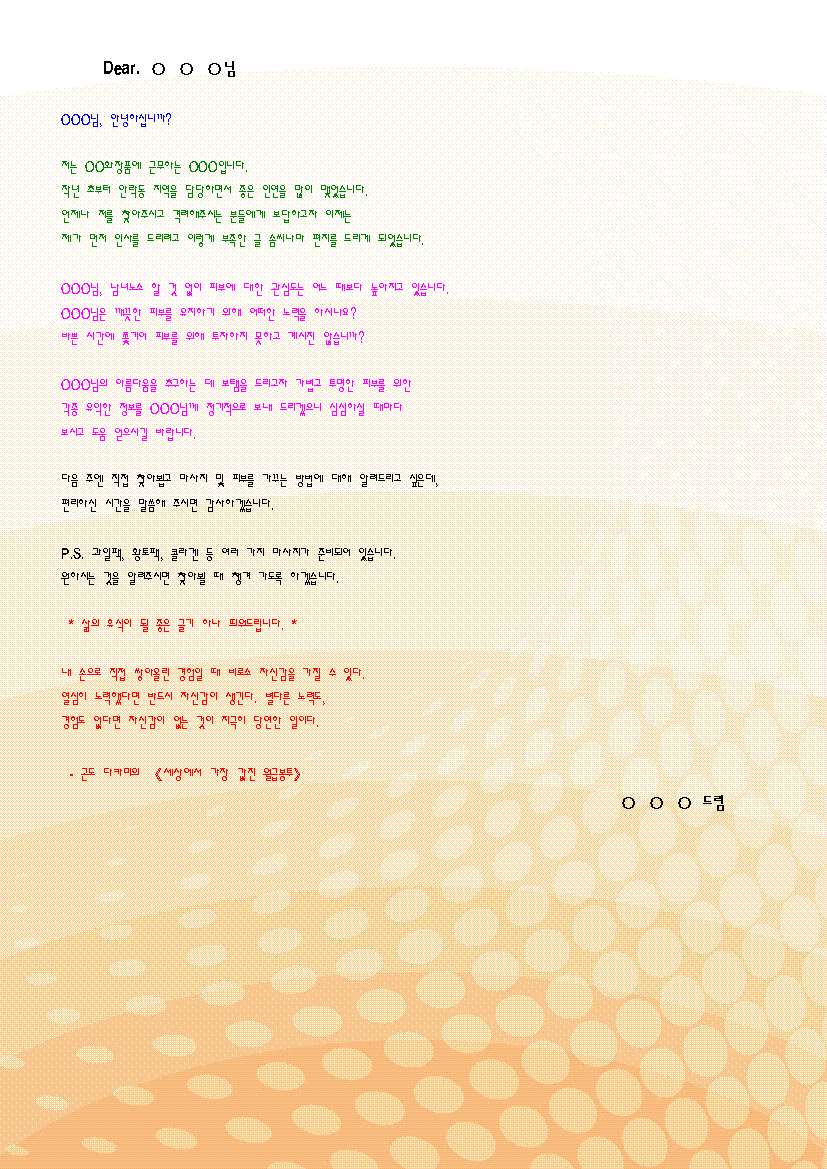 Dear. ○ ○ ○님
○○○님, 안녕하십니까?
저는 ○○화장품에 근무하는 ○○○입니다.
작년 초부터 안락동 지역을 담당하면서 좋은 인연을 많이 맺었습니다.
언제나 저를 찾아주시고 격려해주시는 분들에게 보답하고자 이제는
제가 먼저 인사를 드리려고 이렇게 부족한 글 솜씨나마 편지를 드리게 되었습니다.
○○○님, 남녀노소 할 것 없이 피부에 대한 관심도는 어느 때보다 높아지고 있습니다.
○○○님은 깨끗한 피부를 유지하기 위해 어떠한 노력을 하시나요?
바쁜 시간에 쫓기어 피부를 위해 투자하지 못하고 계시진 않습니까?
○○○님의 아름다움을 추구하는 데 보탬을 드리고자 가볍고 투명한 피부를 위한
각종 유익한 정보를 ○○○님께 정기적으로 보내 드리겠으니 심심하실 때마다
보시고 도움 얻으시길 바랍니다.
다음 주엔 직접 찾아뵙고 마사지 및 피부를 가꾸는 방법에 대해 알려드리고 싶은데,
편리하신 시간을 말씀해 주시면 감사하겠습니다.
P.S. 과일팩, 황토팩, 콜라겐 등 여러 가지 마사지가 준비되어 있습니다.
원하시는 것을 알려주시면 찾아뵐 때 챙겨 가도록 하겠습니다.
* 삶의 휴식이 될 좋은 글귀 하나 띄워드립니다. *
내 손으로 직접 쌓아올린 경험일 때 비로소 자신감을 가질 수 있다.
열심히 노력했다면 반드시 자신감이 생긴다. 별다른 노력도,
경험도 없다면 자신감이 없는 것이 지극히 당연한 일이다.
- 곤도 다카미의 《세상에서 가장 값진 월급봉투》
○ ○ ○ 드림